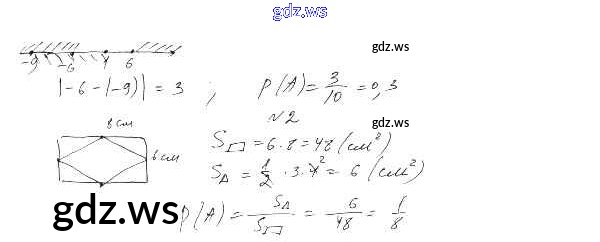 gdz.ws
-9 -6 4 6
gdz.ws
|-6-(-9)| = 3 ; P(A) = 3/10 = 0,3
№2
8 см
6 см
gdz.ws
S▭ = 6·8 = 48 (см²)
S△ = 1/2 · 3 · 4 = 6 (см²)
gdz.ws
P(A) = S△/S▭ = 6/48 = 1/8